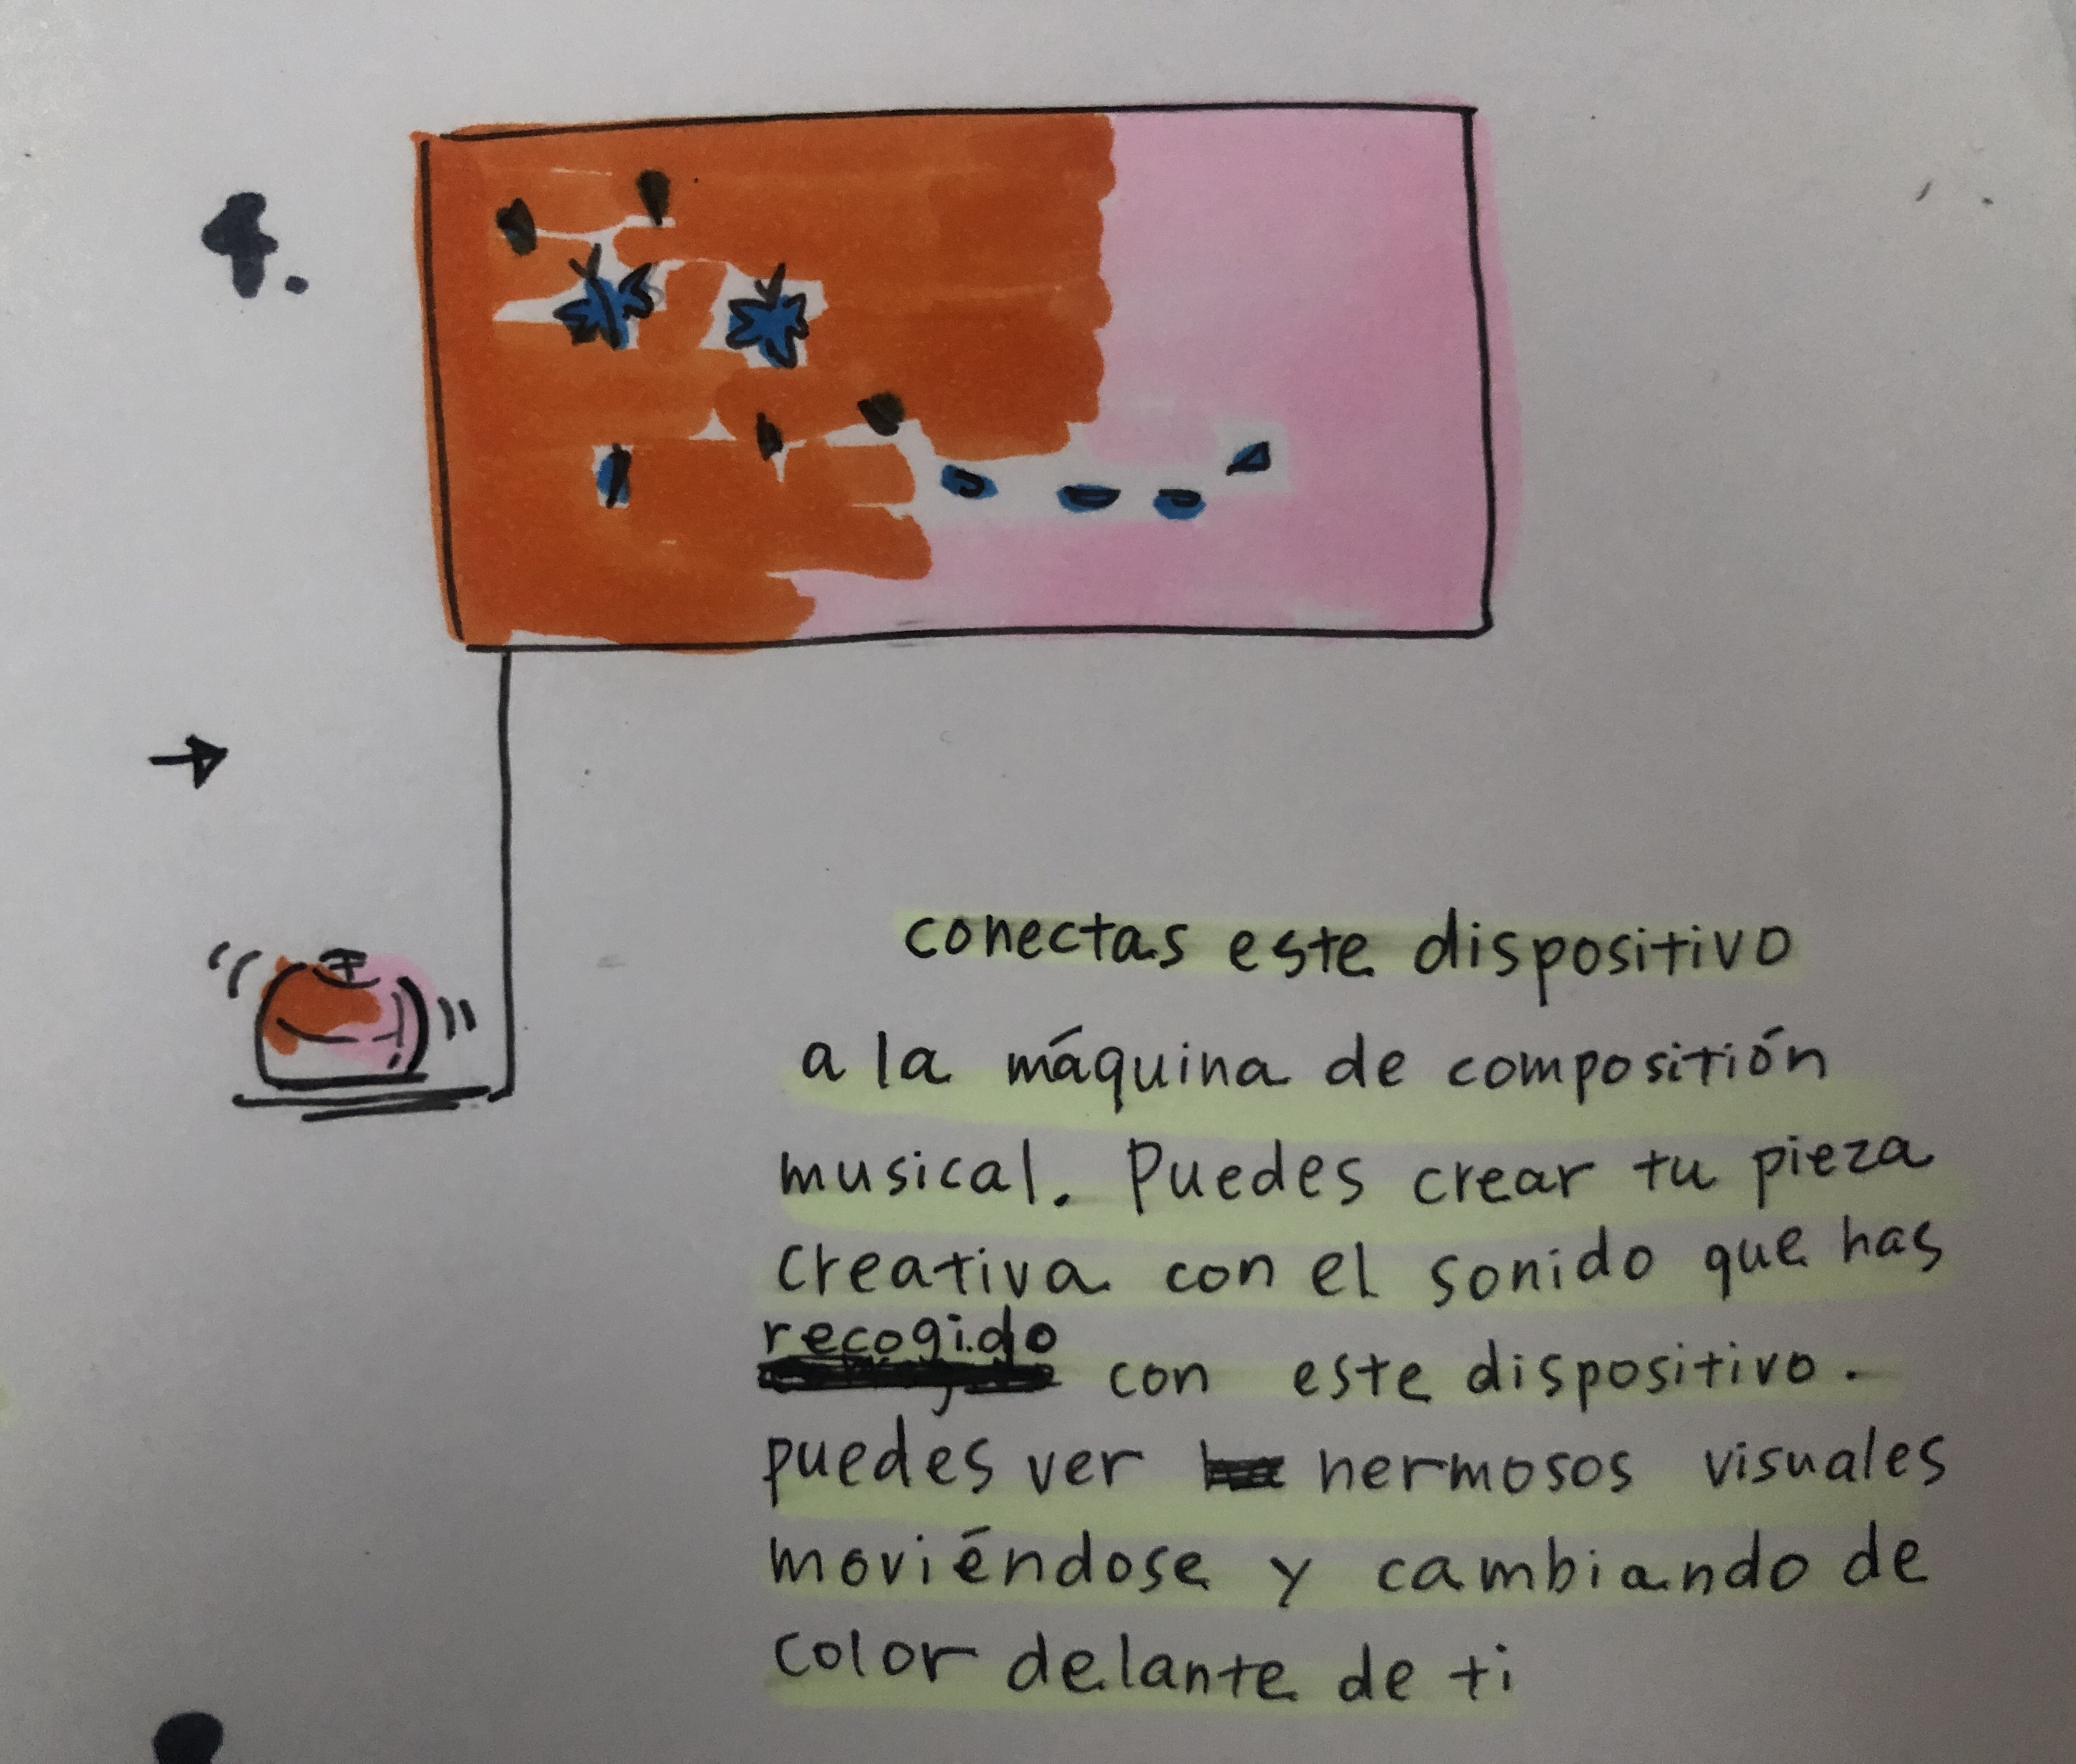 4.
conectas este dispositivo
a la máquina de compositión
musical. Puedes crear tu pieza
creativa con el sonido que has
recogido
con este dispositivo.
puedes ver hermosos visuales
moviéndose y cambiando de
color delante de ti